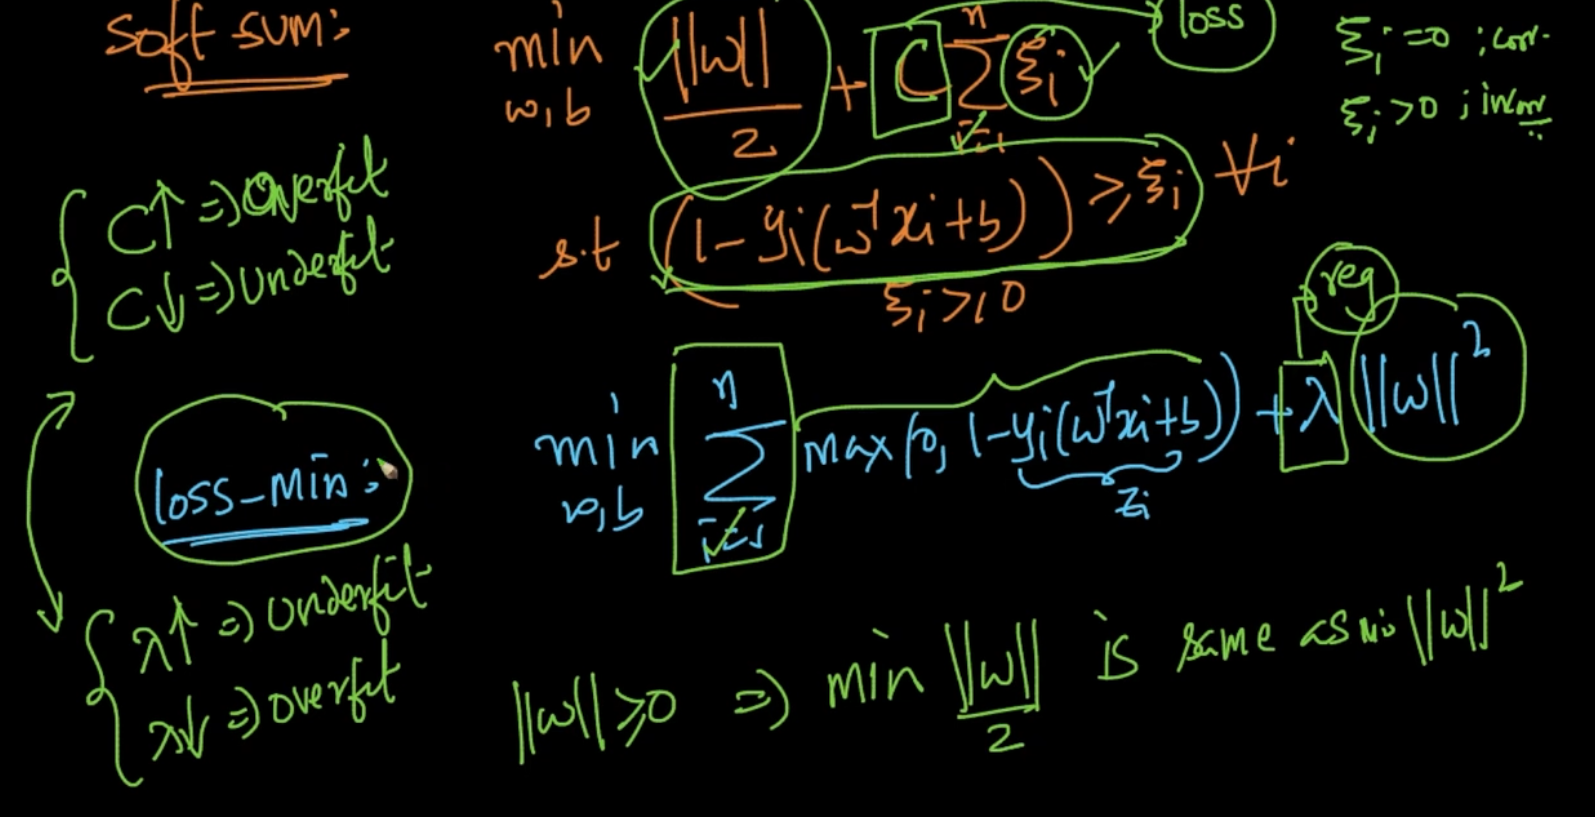 Soft SVM:
min w,b ||w||/2 + C n Σ i=1 ξi
loss
ξi = 0 ; corr.
ξi > 0 ; incorr
s.t (1 - yi(wᵀxi + b)) ≥ ξi ∀i
ξi ≥ 0
C↑ ⇒ Overfit
C↓ ⇒ Underfit
reg
loss-min:
min w,b n Σ i=1 max(0, 1 - yi(wᵀxi + b)) + λ ||w||²
Zi
λ↑ ⇒ Underfit
λ↓ ⇒ overfit
||w|| ≥ 0 ⇒ min ||w||/2 is same as min ||w||²